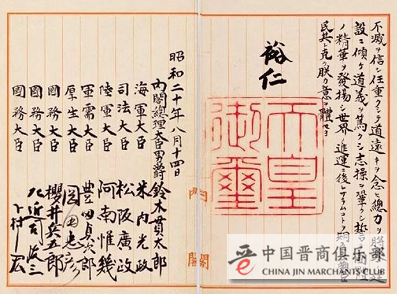 不滅ヲ信シ任重クシテ道遠キヲ念ヒ總力ヲ將來ノ建
設ニ傾ケ道義ヲ篤クシ志操ヲ鞏クシ誓テ國體
ノ精華ヲ發揚シ世界ノ進運ニ後レサラムコトヲ期スヘシ爾臣
民其レ克ク朕カ意ヲ體セヨ
裕仁
天皇御璽
昭和二十年八月十四日
内閣總理大臣男爵鈴木貫太郎
海軍大臣 米内光政
司法大臣 松阪廣政
陸軍大臣 阿南惟幾
軍需大臣 豊田貞次郎
厚生大臣 岡田忠彦
國務大臣 櫻井兵五郎
國務大臣 左近司政三
國務大臣 下村宏
内閣
中国晋商俱乐部
CHINA JIN MARCHANTS CLUB